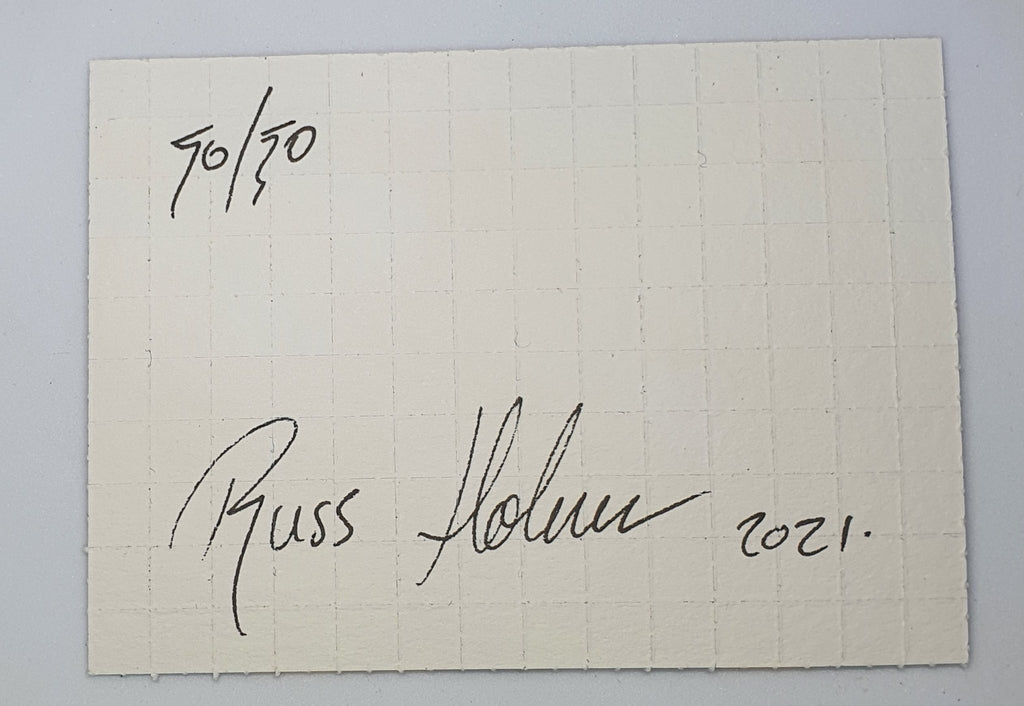 50/50
Russ Holmes 2021.